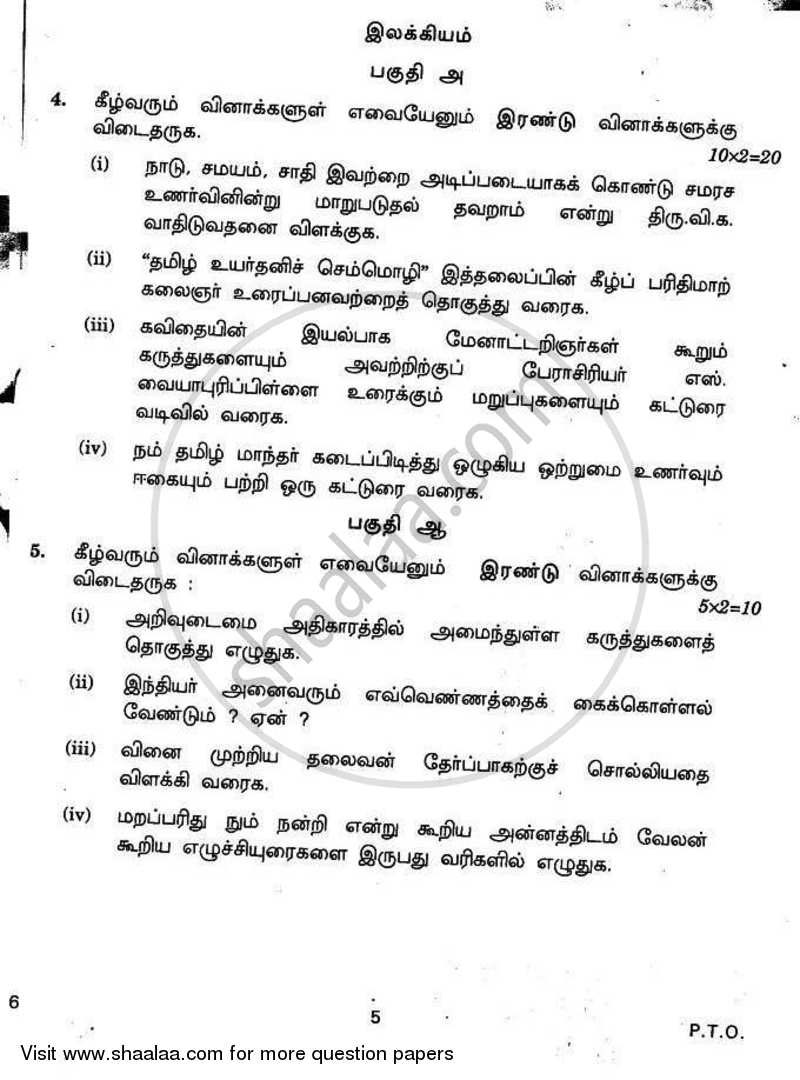 இலக்கியம்
பகுதி அ
4. கீழ்வரும் வினாக்களுள் எவையேனும் இரண்டு வினாக்களுக்கு
விடைதருக.
10×2=20
(i) நாடு, சமயம், சாதி இவற்றை அடிப்படையாகக் கொண்டு சமரச
உணர்வினின்று மாறுபடுதல் தவறாம் என்று திரு.வி.க.
வாதிடுவதனை விளக்குக.
(ii) “தமிழ் உயர்தனிச் செம்மொழி” இத்தலைப்பின் கீழ்ப் பரிதிமாற்
கலைஞர் உரைப்பனவற்றைத் தொகுத்து வரைக.
(iii) கவிதையின் இயல்பாக மேனாட்டறிஞர்கள் கூறும்
கருத்துகளையும் அவற்றிற்குப் பேராசிரியர் எஸ்.
வையாபுரிப்பிள்ளை உரைக்கும் மறுப்புகளையும் கட்டுரை
வடிவில் வரைக.
(iv) நம் தமிழ் மாந்தர் கடைப்பிடித்து ஒழுகிய ஒற்றுமை உணர்வும்
ஈகையும் பற்றி ஒரு கட்டுரை வரைக.
பகுதி ஆ
5. கீழ்வரும் வினாக்களுள் எவையேனும் இரண்டு வினாக்களுக்கு
விடைதருக :
5×2=10
(i) அறிவுடைமை அதிகாரத்தில் அமைந்துள்ள கருத்துகளைத்
தொகுத்து எழுதுக.
(ii) இந்தியர் அனைவரும் எவ்வெண்ணத்தைக் கைக்கொள்ளல்
வேண்டும் ? ஏன் ?
(iii) வினை முற்றிய தலைவன் தேர்ப்பாகற்குச் சொல்லியதை
விளக்கி வரைக.
(iv) மறப்பரிது நும் நன்றி என்று கூறிய அன்னத்திடம் வேலன்
கூறிய எழுச்சியுரைகளை இருபது வரிகளில் எழுதுக.
shaalaa.com
6
5
P.T.O.
Visit www.shaalaa.com for more question papers